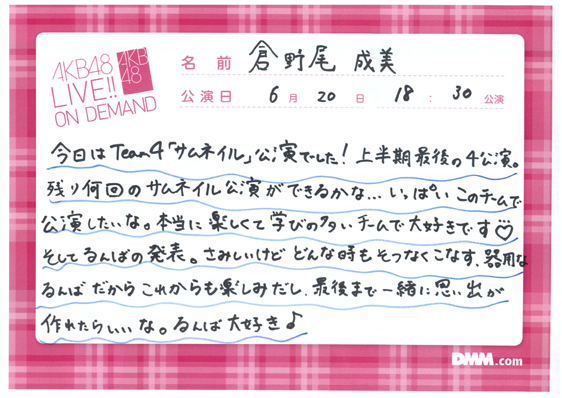 AKB48
LIVE!!
ON DEMAND
AKB
48
名前 倉野尾 成美
公演日 6月20日 18:30公演
今日はTeam4「サムネイル」公演でした！上半期最後の4公演。
残り何回のサムネイル公演ができるかな…いっぱいこのチームで
公演したいな。本当に楽しくて学びの多いチームで大好きです♡
そしてるんばの発表。さみしいけどどんな時もそつなくこなす、器用な
るんばだからこれからも楽しみだし、最後まで一緒に思い出が
作れたらいいな。るんば大好き♪
DMM.com